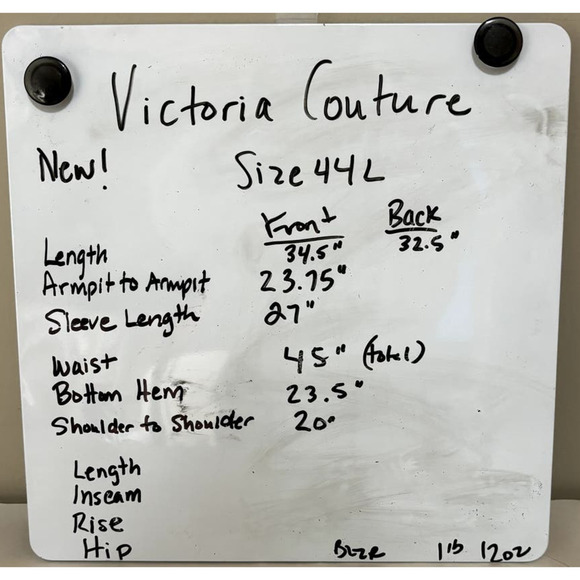 Victoria Couture
New! Size 44L
Front Back
Length 34.5" 32.5"
Armpit to Armpit 23.75"
Sleeve Length 27"
Waist 45" (total)
Bottom Hem 23.5"
Shoulder to Shoulder 20"
Length
Inseam
Rise
Hip BLZR 1 lb 12oz